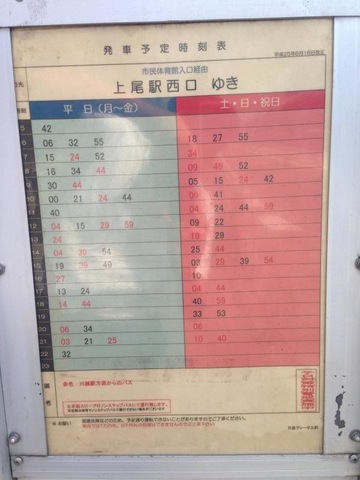 発車予定時刻表
平成25年6月16日改正
市民体育館入口経由
上尾駅西口 ゆき
平日（月〜金） 土・日・祝日
5 42
6 06 32 55 18 27 55
7 15 24 52 34
8 16 34 44 09 49 52
9 30 44 05 15 24 42
10 00 21 24 44 09 20 47
11 40 04 24 44 59
12 04 15 29 59 09 22
13 24 19 29
14 04 39 54 25 44
15 19 39 49 03 29 39 54
16 27 10
17 13 24 04 44
18 14 44 40 59
19 33 53
20 06 34 06
21 03 21 25 10 40
22 32
23
備考
赤色・川越駅方面からのバス